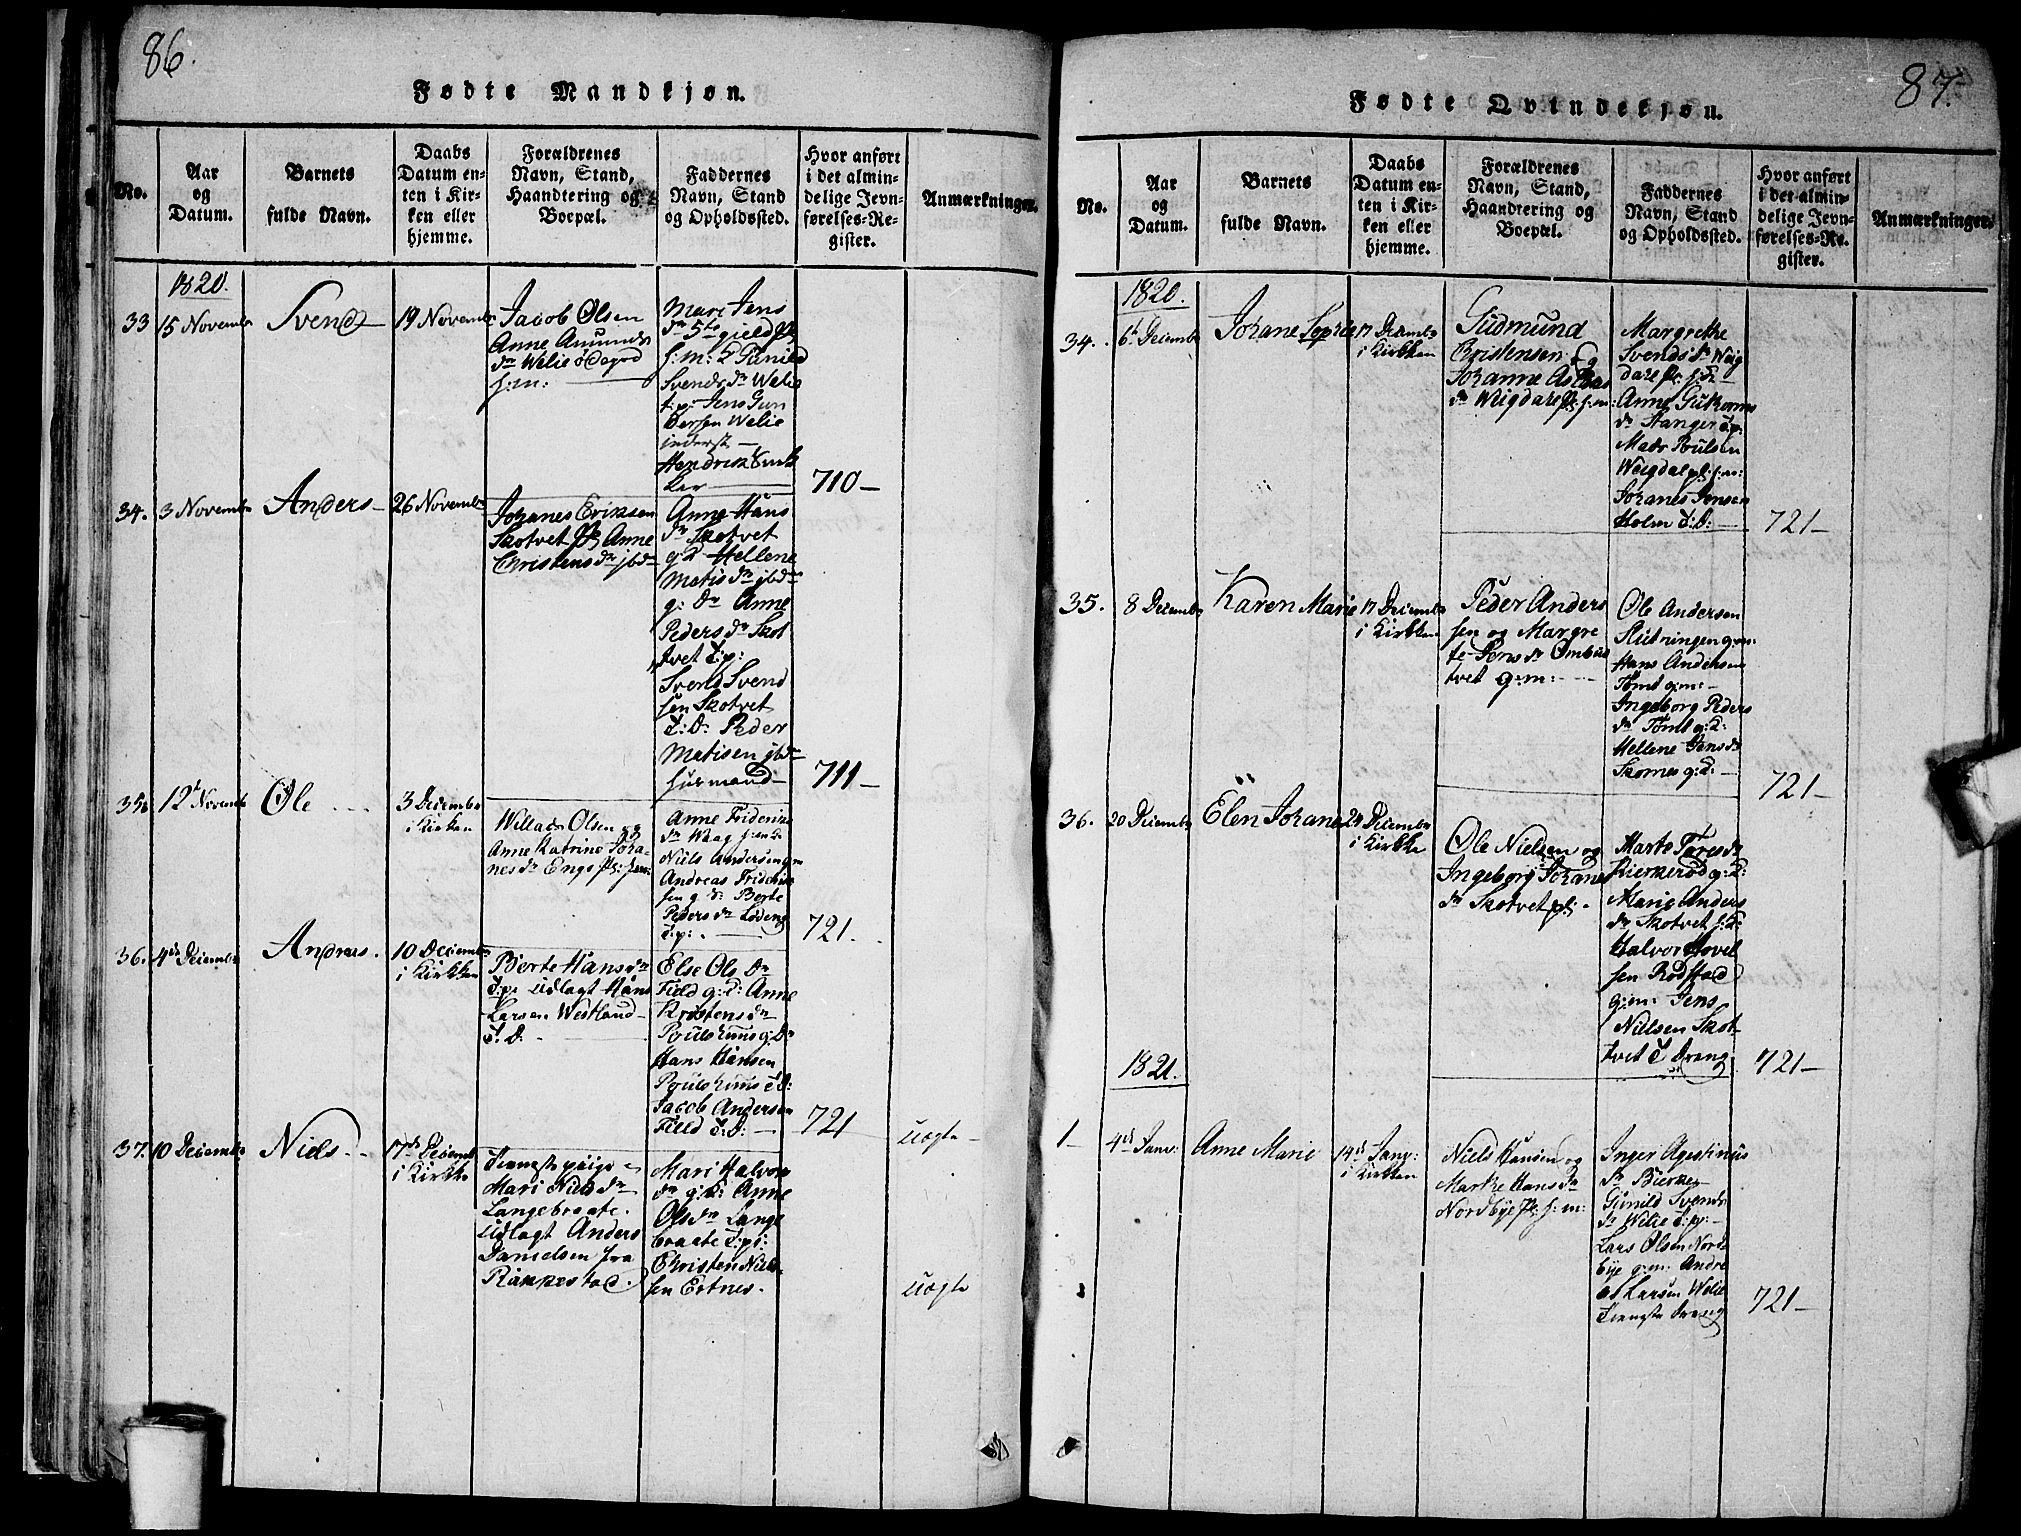 86.
Fødte Mandkjøn.
No.
Aar
og
Datum.
Barnets
fulde Navn.
Daabs
Datum en-
ten i Kir-
ken eller
hjemme.
Forældrenes
Navn, Stand,
Haandtering og
Boepæl.
Faddernes
Navn, Stand
og Opholdssted.
Hvor anført
i det almin-
delige Jevn-
førelses-Re-
gister.
Anmærkninger.
1820.
33
15 Novembr
Svend
19 Novembr
Jacob Olsen
Anne Amunds
dr Welie ødegrd
h:m:
Mari Jens
dr
h:m: & Gunild
Svends dr Welie
t:p: Jens Gun
dersen Welie
inderst
Hendrik
710
34.
3 Novemb
Anders
26 Novembr
Johanes Eriksen
Skotvet Pl Anne
Christens dr ibdm
Anne Hans
dr Skotvet
g d Hellene
Matis dr ibdm
g: dr Anne
Peders dr Skot
tvet T:p:
Svend Svend
sen Skotvet
T: D: Peder
Matisen ibdm
husmand
711
35
12t Novemb
Ole
3 Decembr
i Kirken
Willads Olsen og
Anne Katrine Joha
nes dr Enge Pl: h:m:
Anne Friderika
dr Waag
Niels Andersen gm
Andreas Friderik
sen g d: Berte
Peders dr Lødeng
T:p:
721.
36.
4de Decembr
Andreas.
10 Decembr
i Kirkken
Berte Hans dr
T:p: udlagt Hans
Larsen Westland
T. D.
Else Ols dr
Field g: d: Anne
Kristens dr
Poulshuus g: D:
Hans Hansen
Poulshuus T D:
Jacob Andersen
Field T: D:
721
uægte
37.
10 Decembr
Niels
17de Decemb
i Kirkke
Tieneste pige
Mari Niels dr
Langebraate.
udlagt Anders
Danielsen fra
Rakkestad.
Mari Halvor
dr g: d: Anne
Ols dr Lange
braate T:p:
Christen Niel
sen Ertnes.
uægte
87.
Fødte Qvindekjøn.
No.
Aar
og
Datum.
Barnets
fulde Navn.
Daabs
Datum en-
ten i Kir-
ken eller
hjemme.
Forældrenes
Navn, Stand,
Haandtering og
Boepæl.
Faddernes
Navn, Stand
og Opholdssted.
Hvor anført
i det almin-
delige Jevn-
førelses-Re-
gister.
Anmærkninger.
1820.
34.
6t Decembr
Johane Sophie
17 Decembr
i Kirkken
Gudmund
Cristensen og
Johanne Aslaks
dr Weigdare Pl: h:m:
Margrethe
Svends dr Weig
dare pl: h: K
Anne Gutorms
dr Stanger T:p:
Mads Poulsen
Weigdal pl: h:m:
Johanes Jensen
Holm T: D:
721
35.
8 Decembr
Karen Marie
17 Decembr
i Kirkken
Peder Anders
sen og Margre
te Jens dr Ombus
tvet g:m:
Ole Andersen
Slutningen g:m:
Hans Andersen
Tomt g:m:
Ingeborg Peders
dr Tomt g: d:
Hellene Jens dr
Skornes g: d:
721
36.
20 Decembr
Elen Johane
24 Decembr
i Kirkke
Ole Nielsen og
Ingeborg Johanes
dr Skotvet pl:
Marte Tores dr
Kierkerød g: d:
Marie Anders
dr Skotvet h: K:
Halvor Hovel
sen Rødstad
g:m: Jens
Nielsen Skot
tvet T Dreng
721
1821.
1
4de Janv:
Anne Marie
14de Janv:
i Kirkken
Niels Hansen og
Marte Hans dr
Nordbye Pl: h:m:
Inger Agestinus
dr Bierke
Gunild Svends
dr Welie T:p:
Lars Olsen Nord
bye g:m: Andre
as Larsen Welie
Tieneste Dreng
721